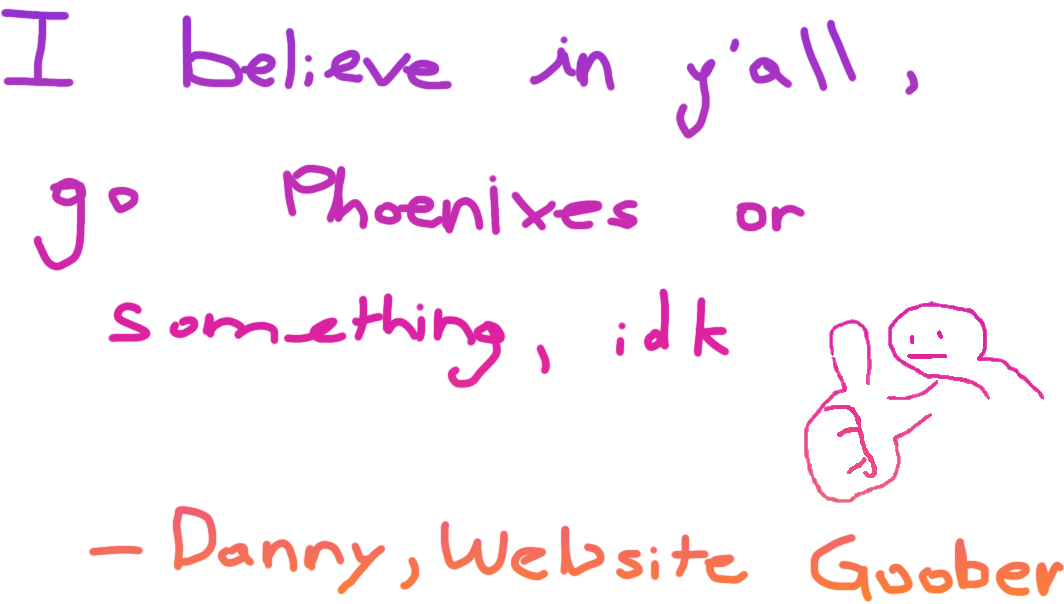 I believe in y'all,
go Phoenixes or
something, idk
- Danny, Website Goober